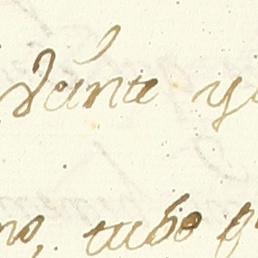 Veinte y
no, tubo